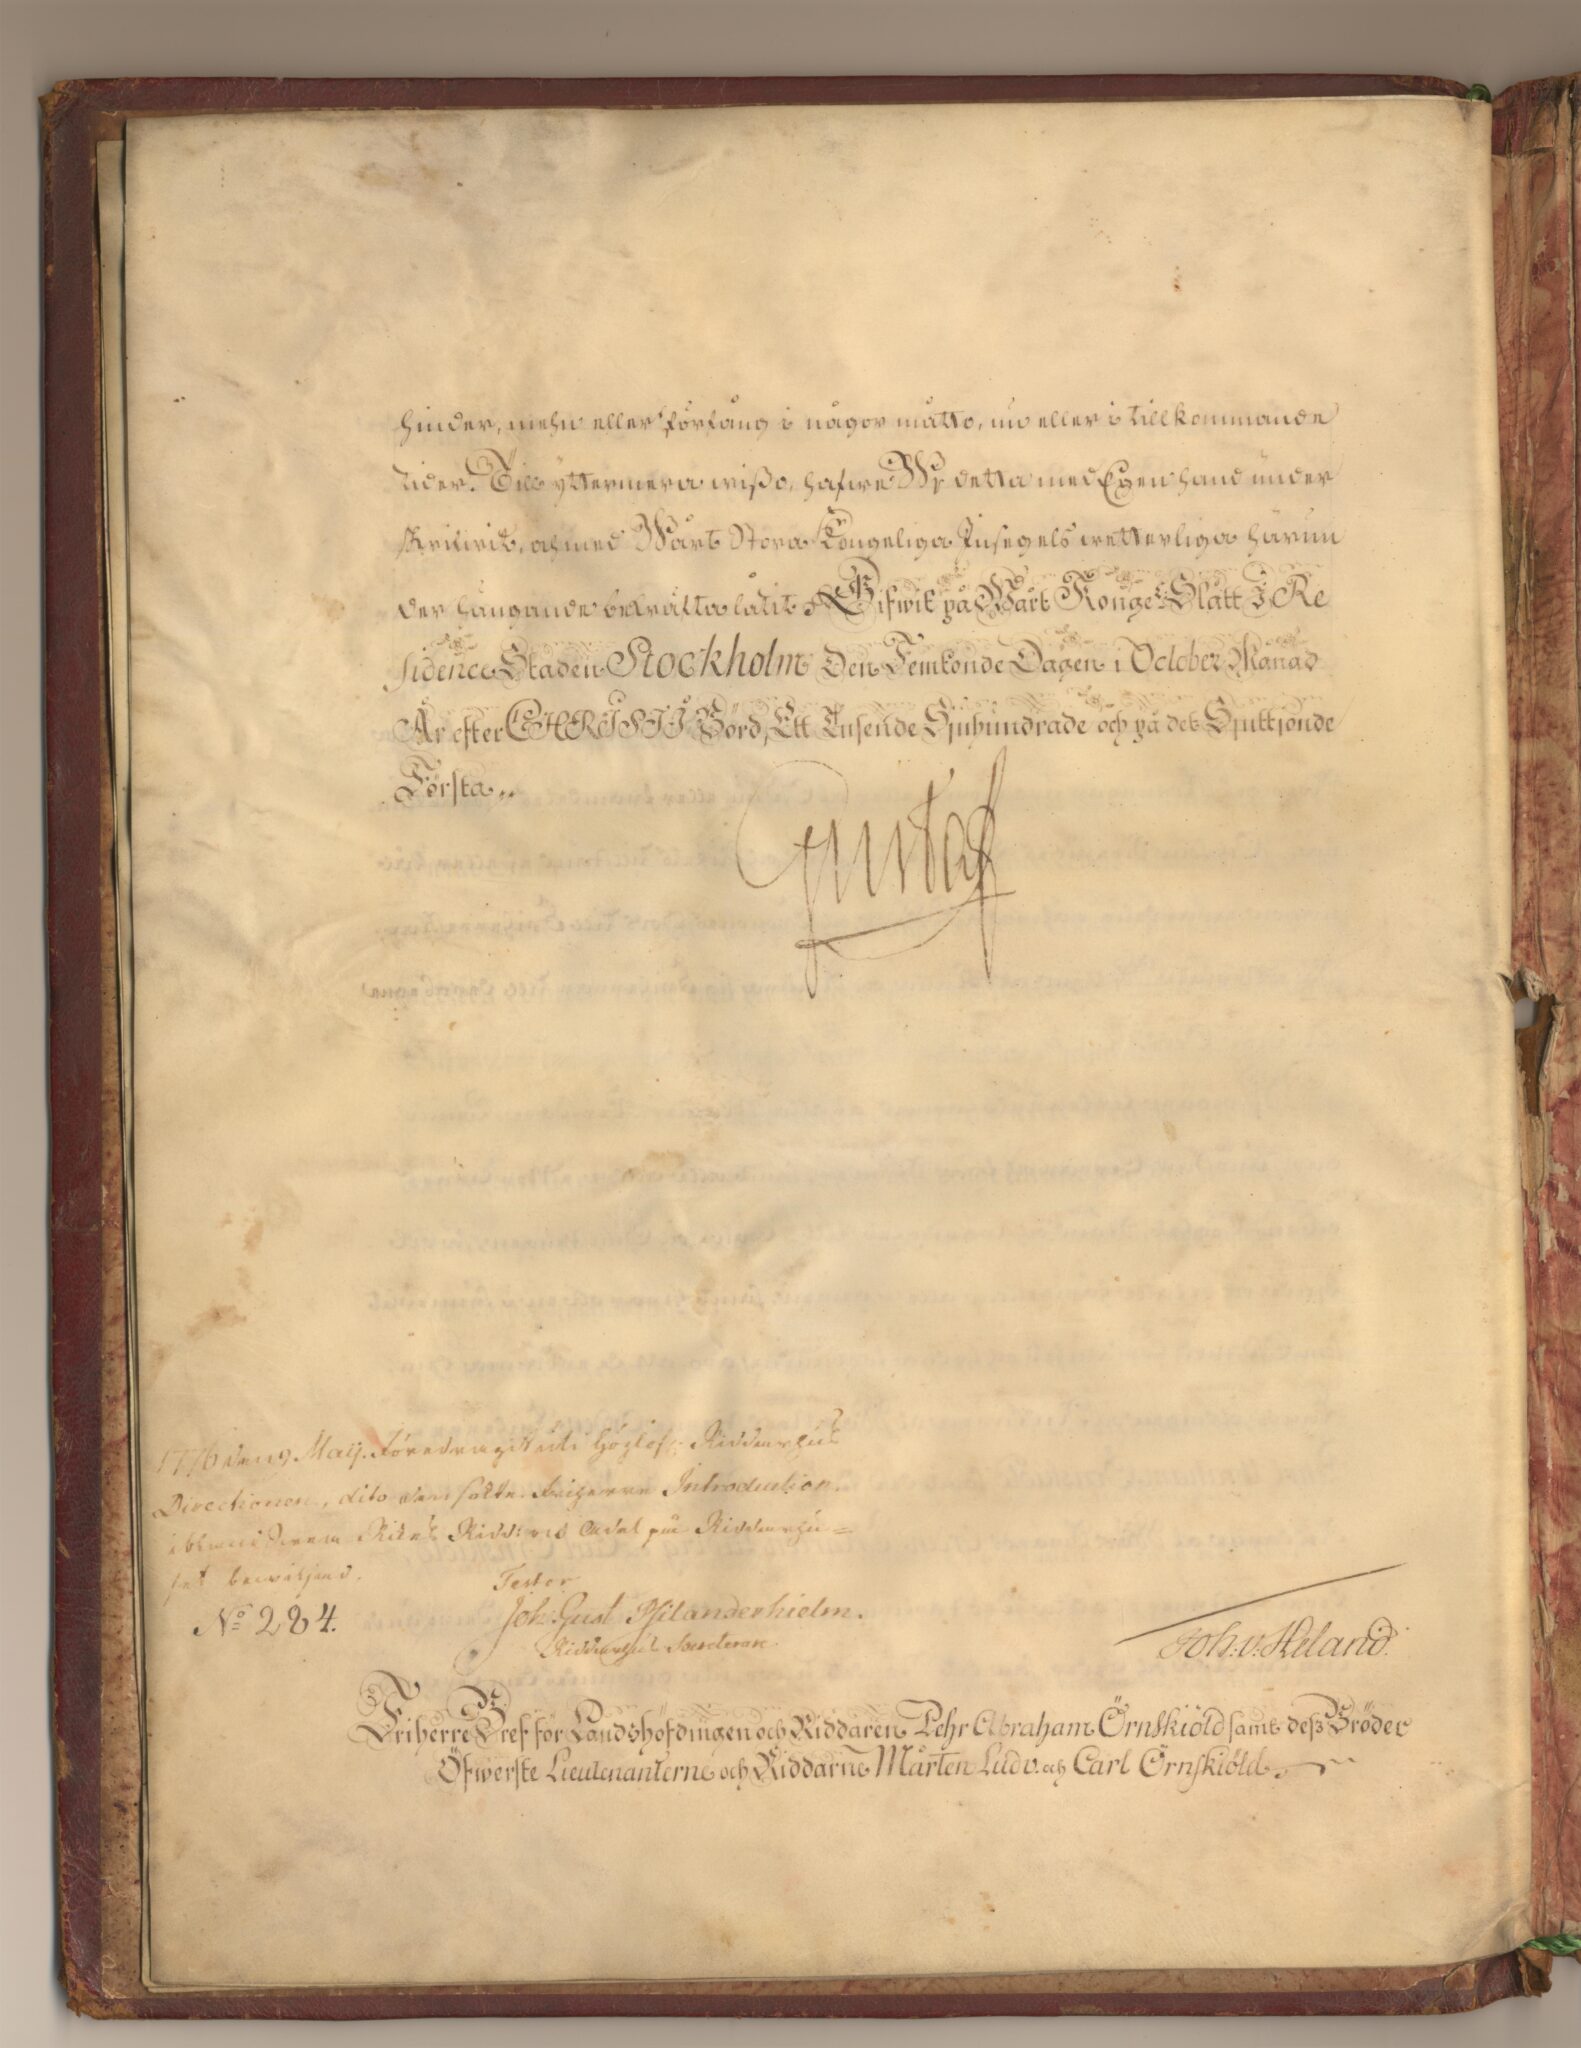 hinder, mehn eller förfång i någor måtto, nu eller i tillkommande
tider. Till yttermera wißo, hafwe Wy detta med Egen hand under
skrifwit, och med Wårt Stora Kongeliga Insegels wetterliga härun
der hängande bekräfta låtit. Gifwit på Wårt Konge: Slått I Re
sidence Staden Stockholm Den Femtonde Dagen i October Månad
År efter CHRISTI Börd, Ett Tusende Sjuhundrade och på det Sjuttjonde
Första..
Gustaf
1776 den 9. Maij. Föredragit uti Höglofl: Riddarhus
Directionen, dito den sökte Friherre Introduction
ibland Rikets Ridd: och Adel på Riddarhu=
set bewiljad.
Testor
Joh: Gust Psilanderhielm.
Riddarhus Secreterare
No 284.
Joh: v. Heland.
Friherre Bref för Landshöfdingen och Riddaren Pehr Abraham Örnskiöld samt deß Bröder
Öfwerste Lieutenanterne och Riddarne Mårten Ludv. och Carl Örnskiöld.